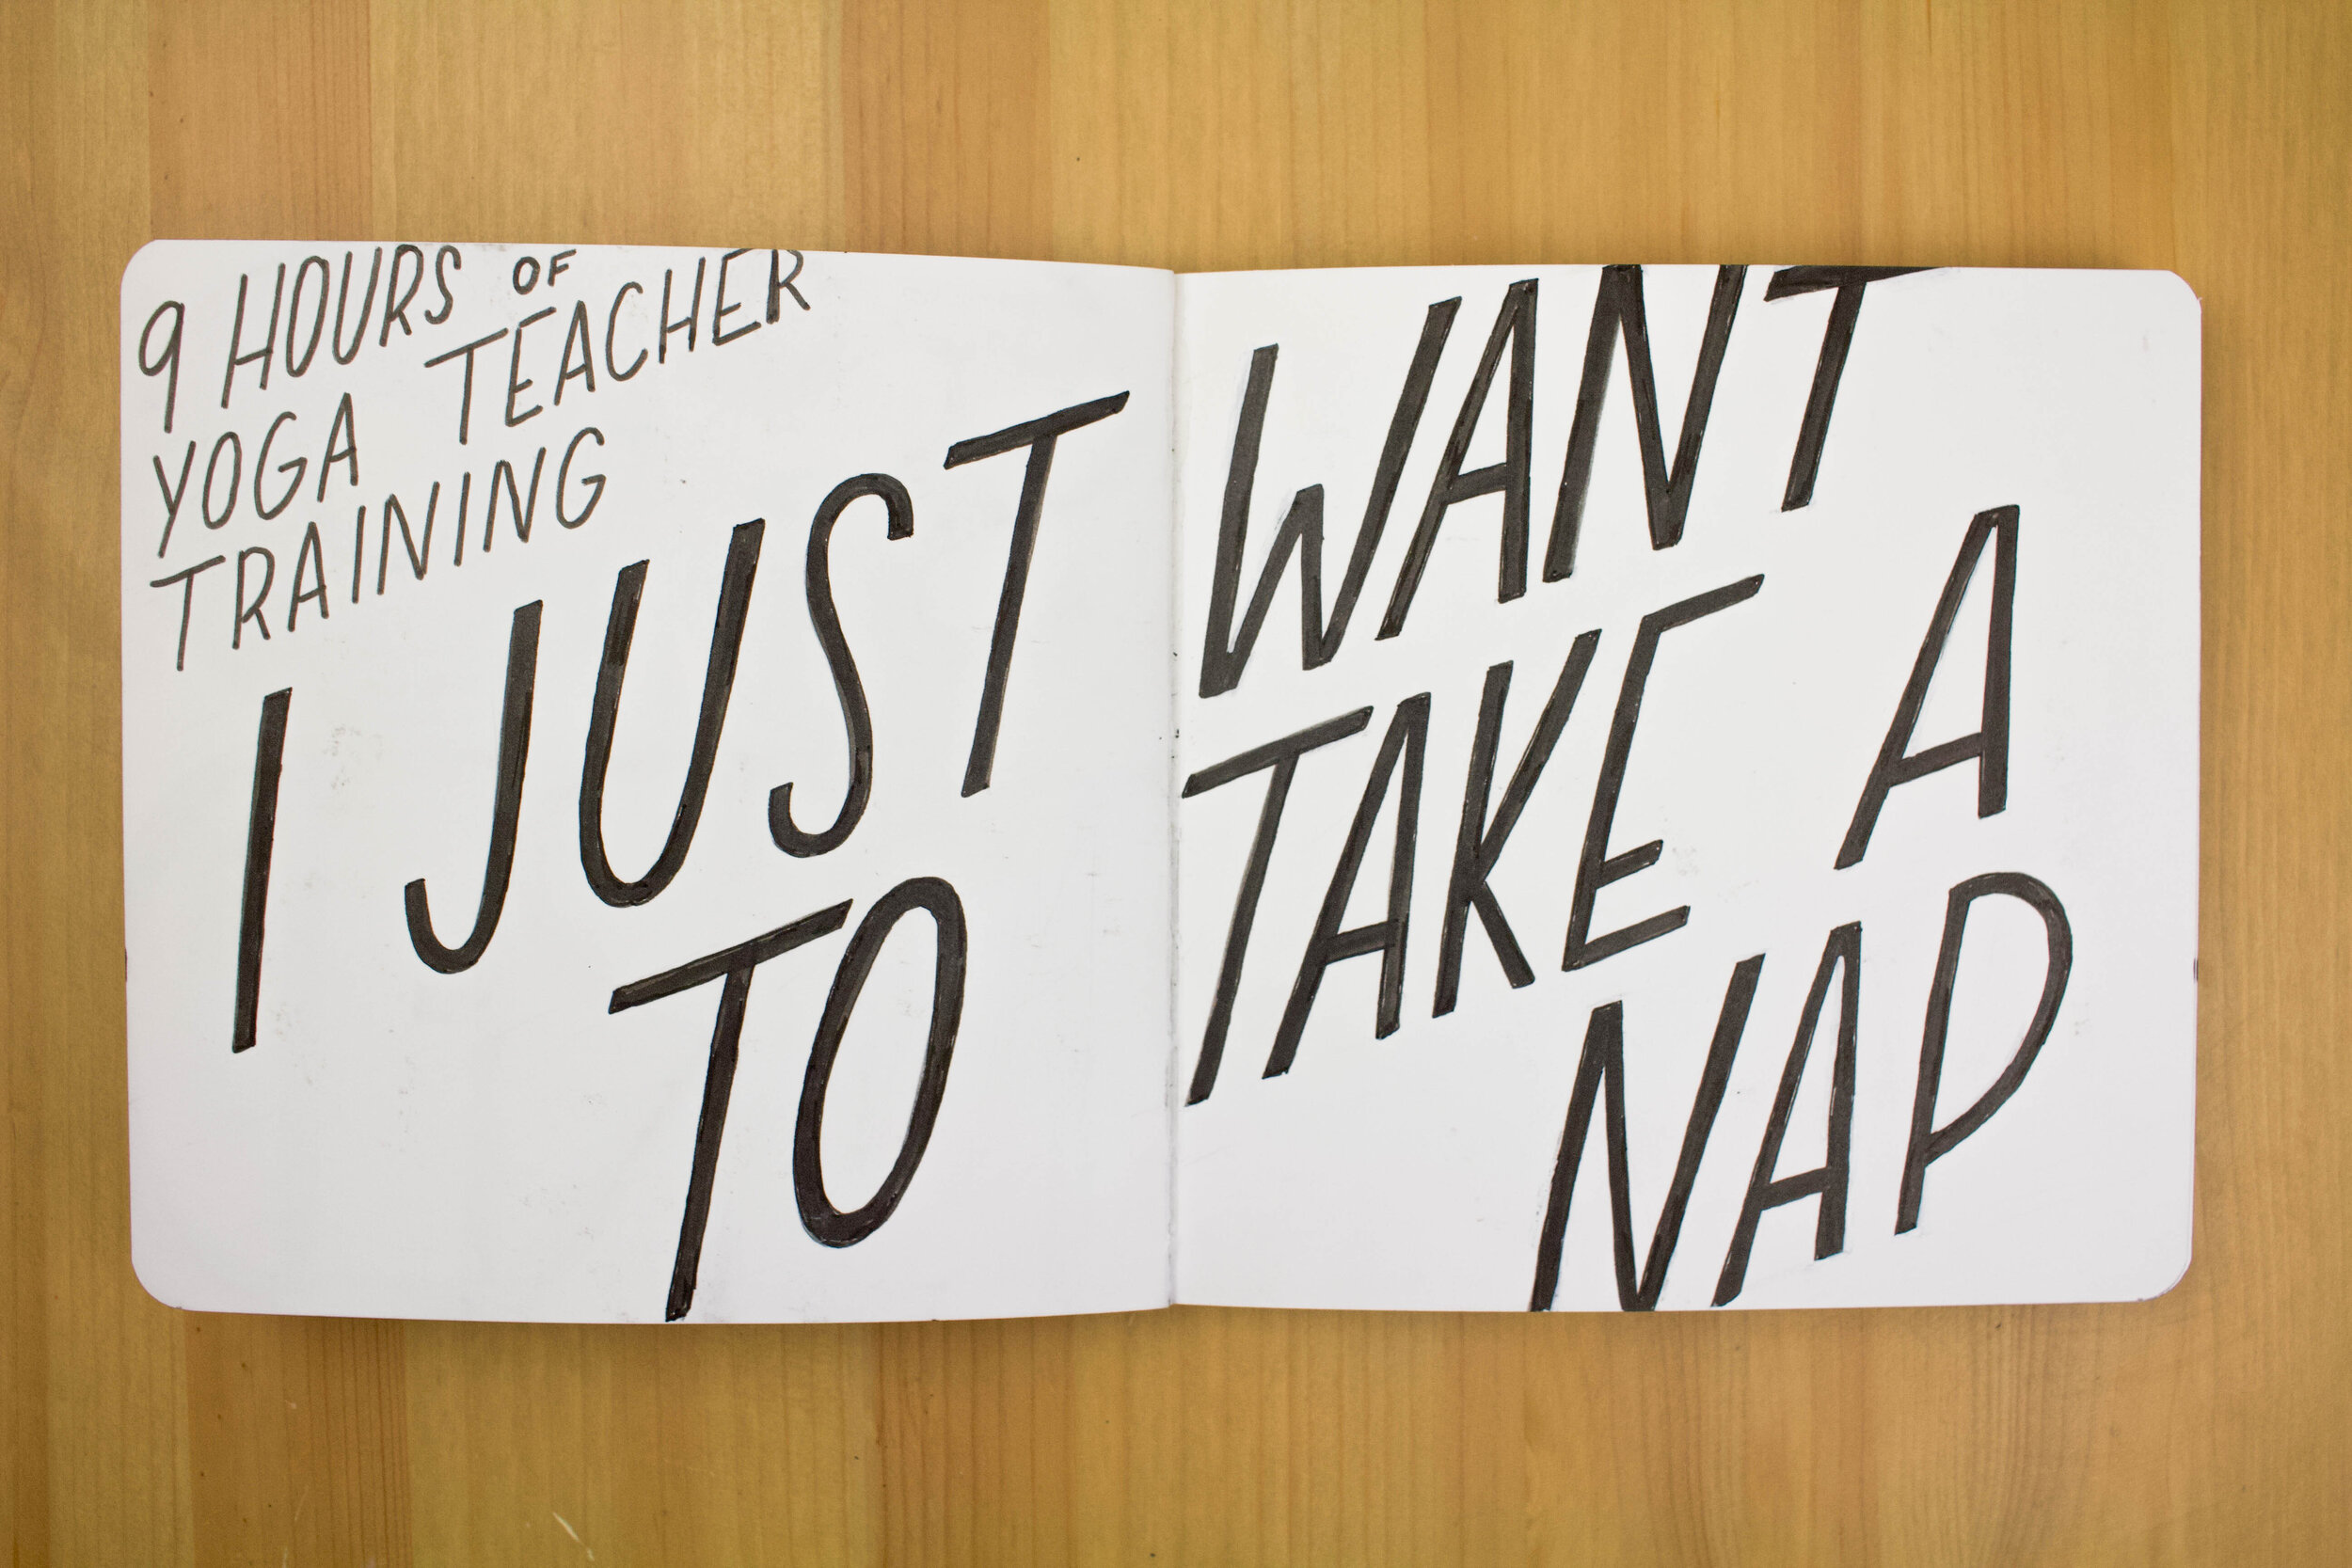 9 HOURS OF
YOGA TEACHER
TRAINING
I JUST WANT
TO TAKE A
NAP